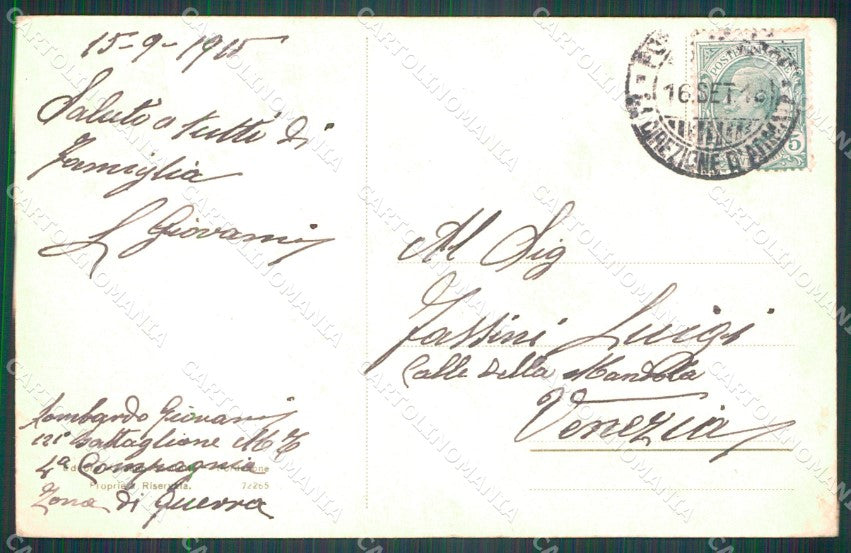 15-9-1915
Saluto a tutti di
Famiglia
L Giovanni
Al Sig
Tassini Luigi
Calle della Mandola
Venezia
Lombardo Giovanni
125 Battaglione M T
4ª Compagnia
Zona di Guerra
Proprietà Riservata. 72265
POSTE
5
16.SET.15
DIREZIONE D'ARMATA
CARTOLINOMANIA